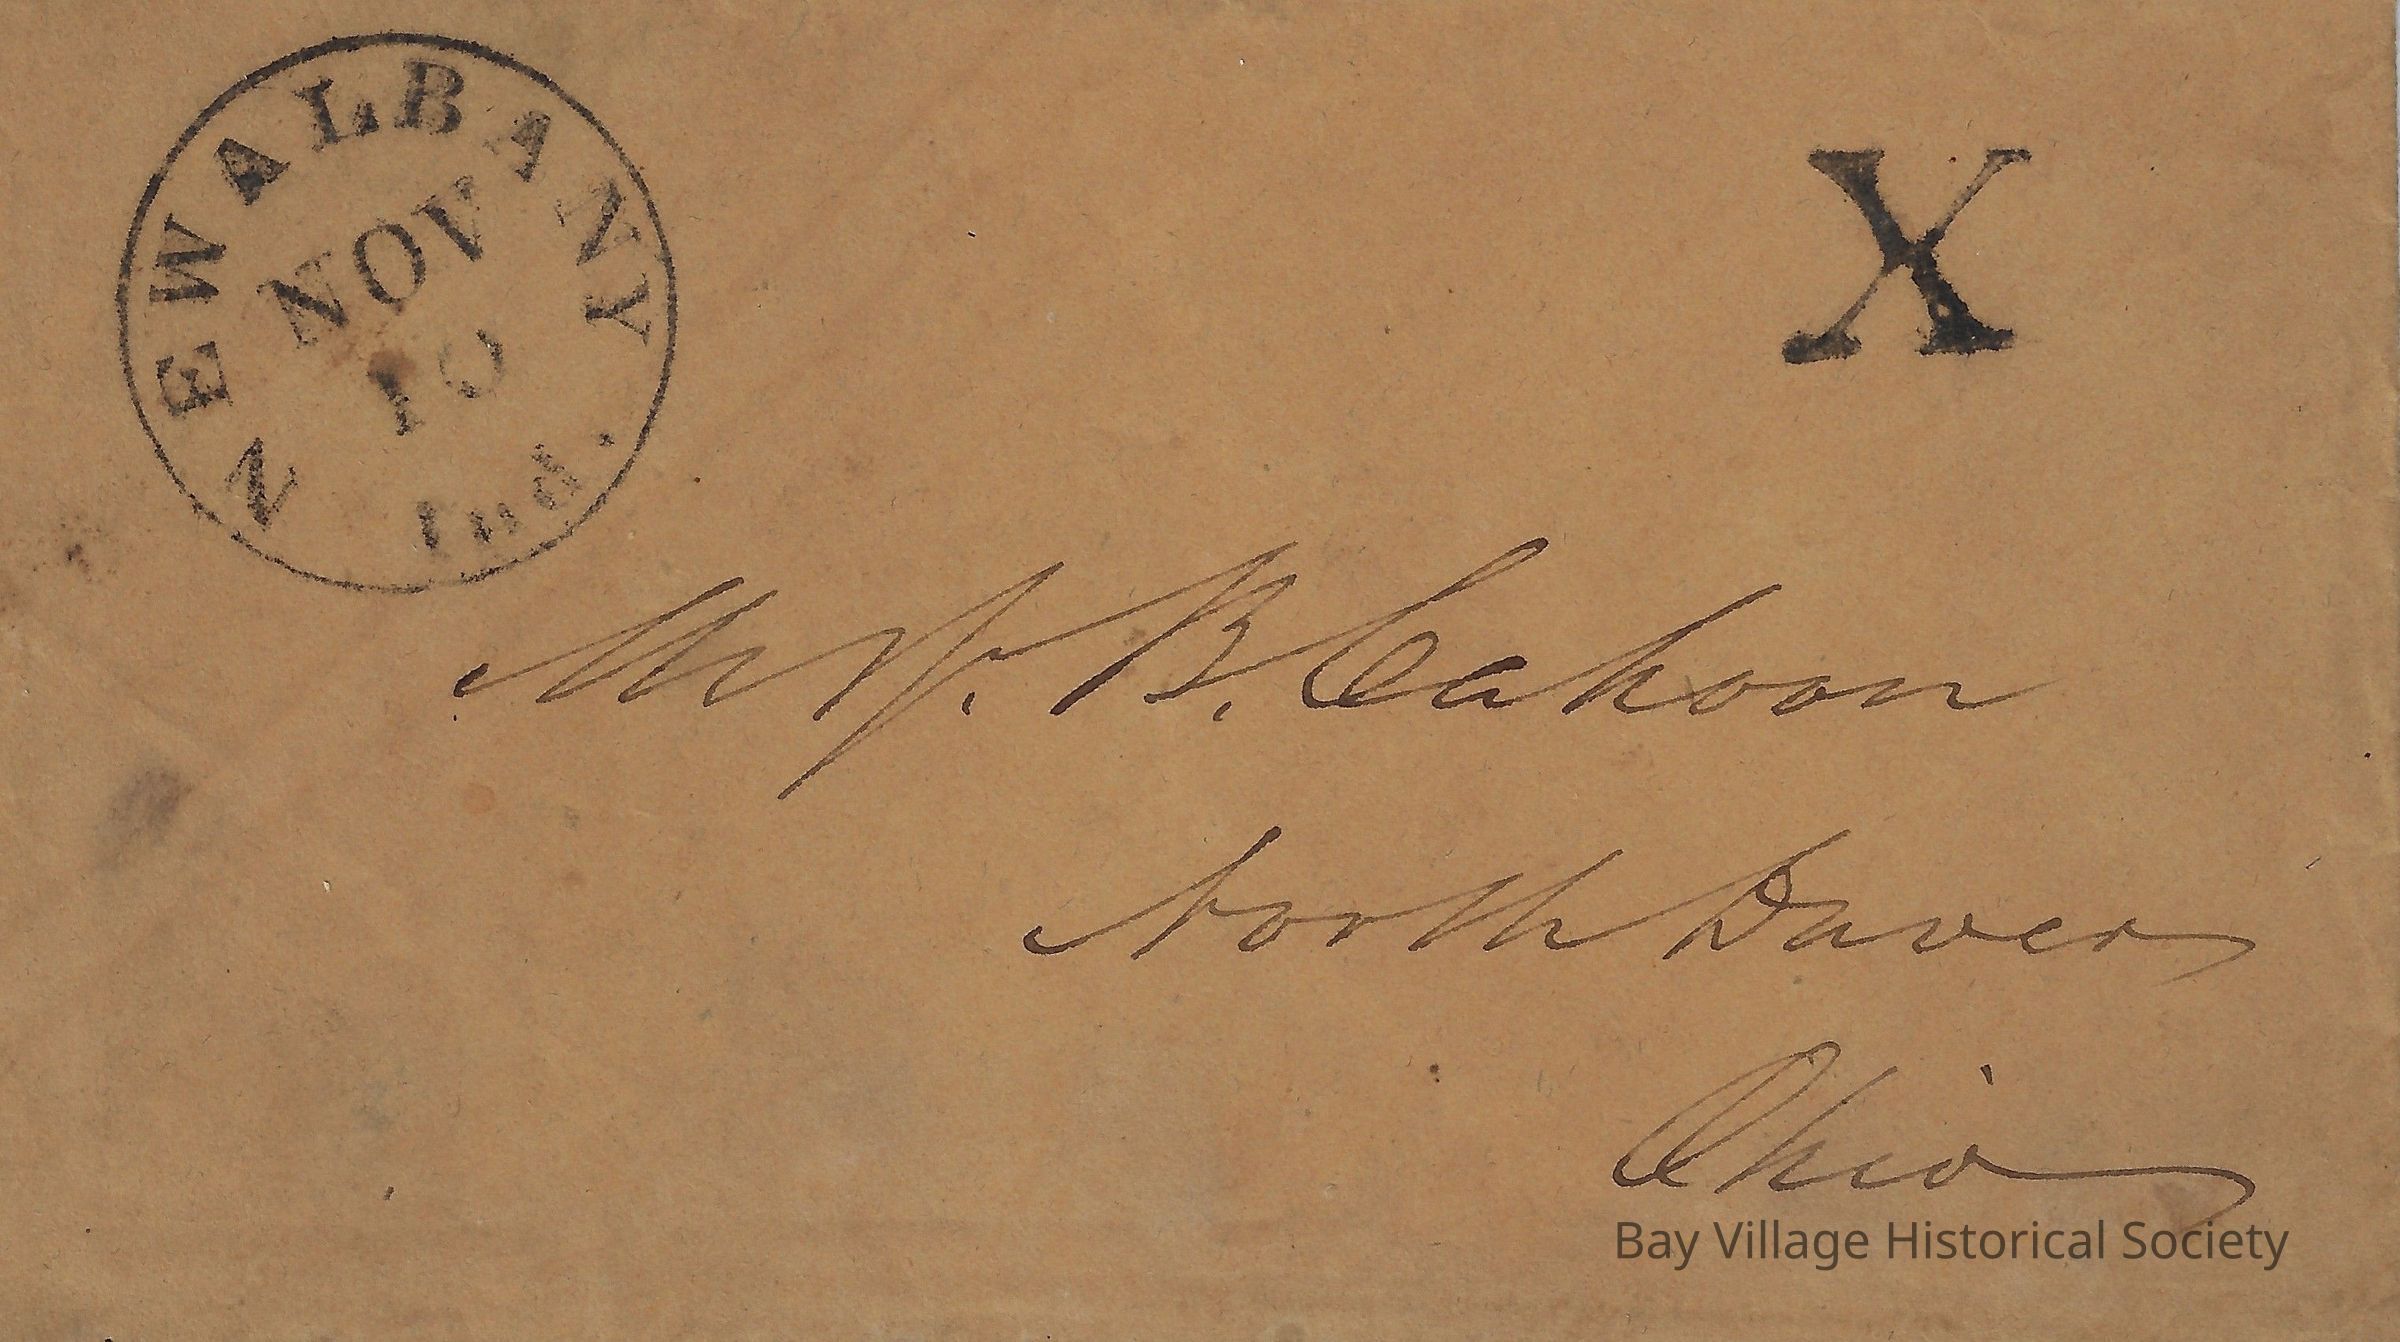 NEW ALBANY
NOV
10
Ind.
X
Mr J. B. Cahoon
North Dover
Ohio
Bay Village Historical Society